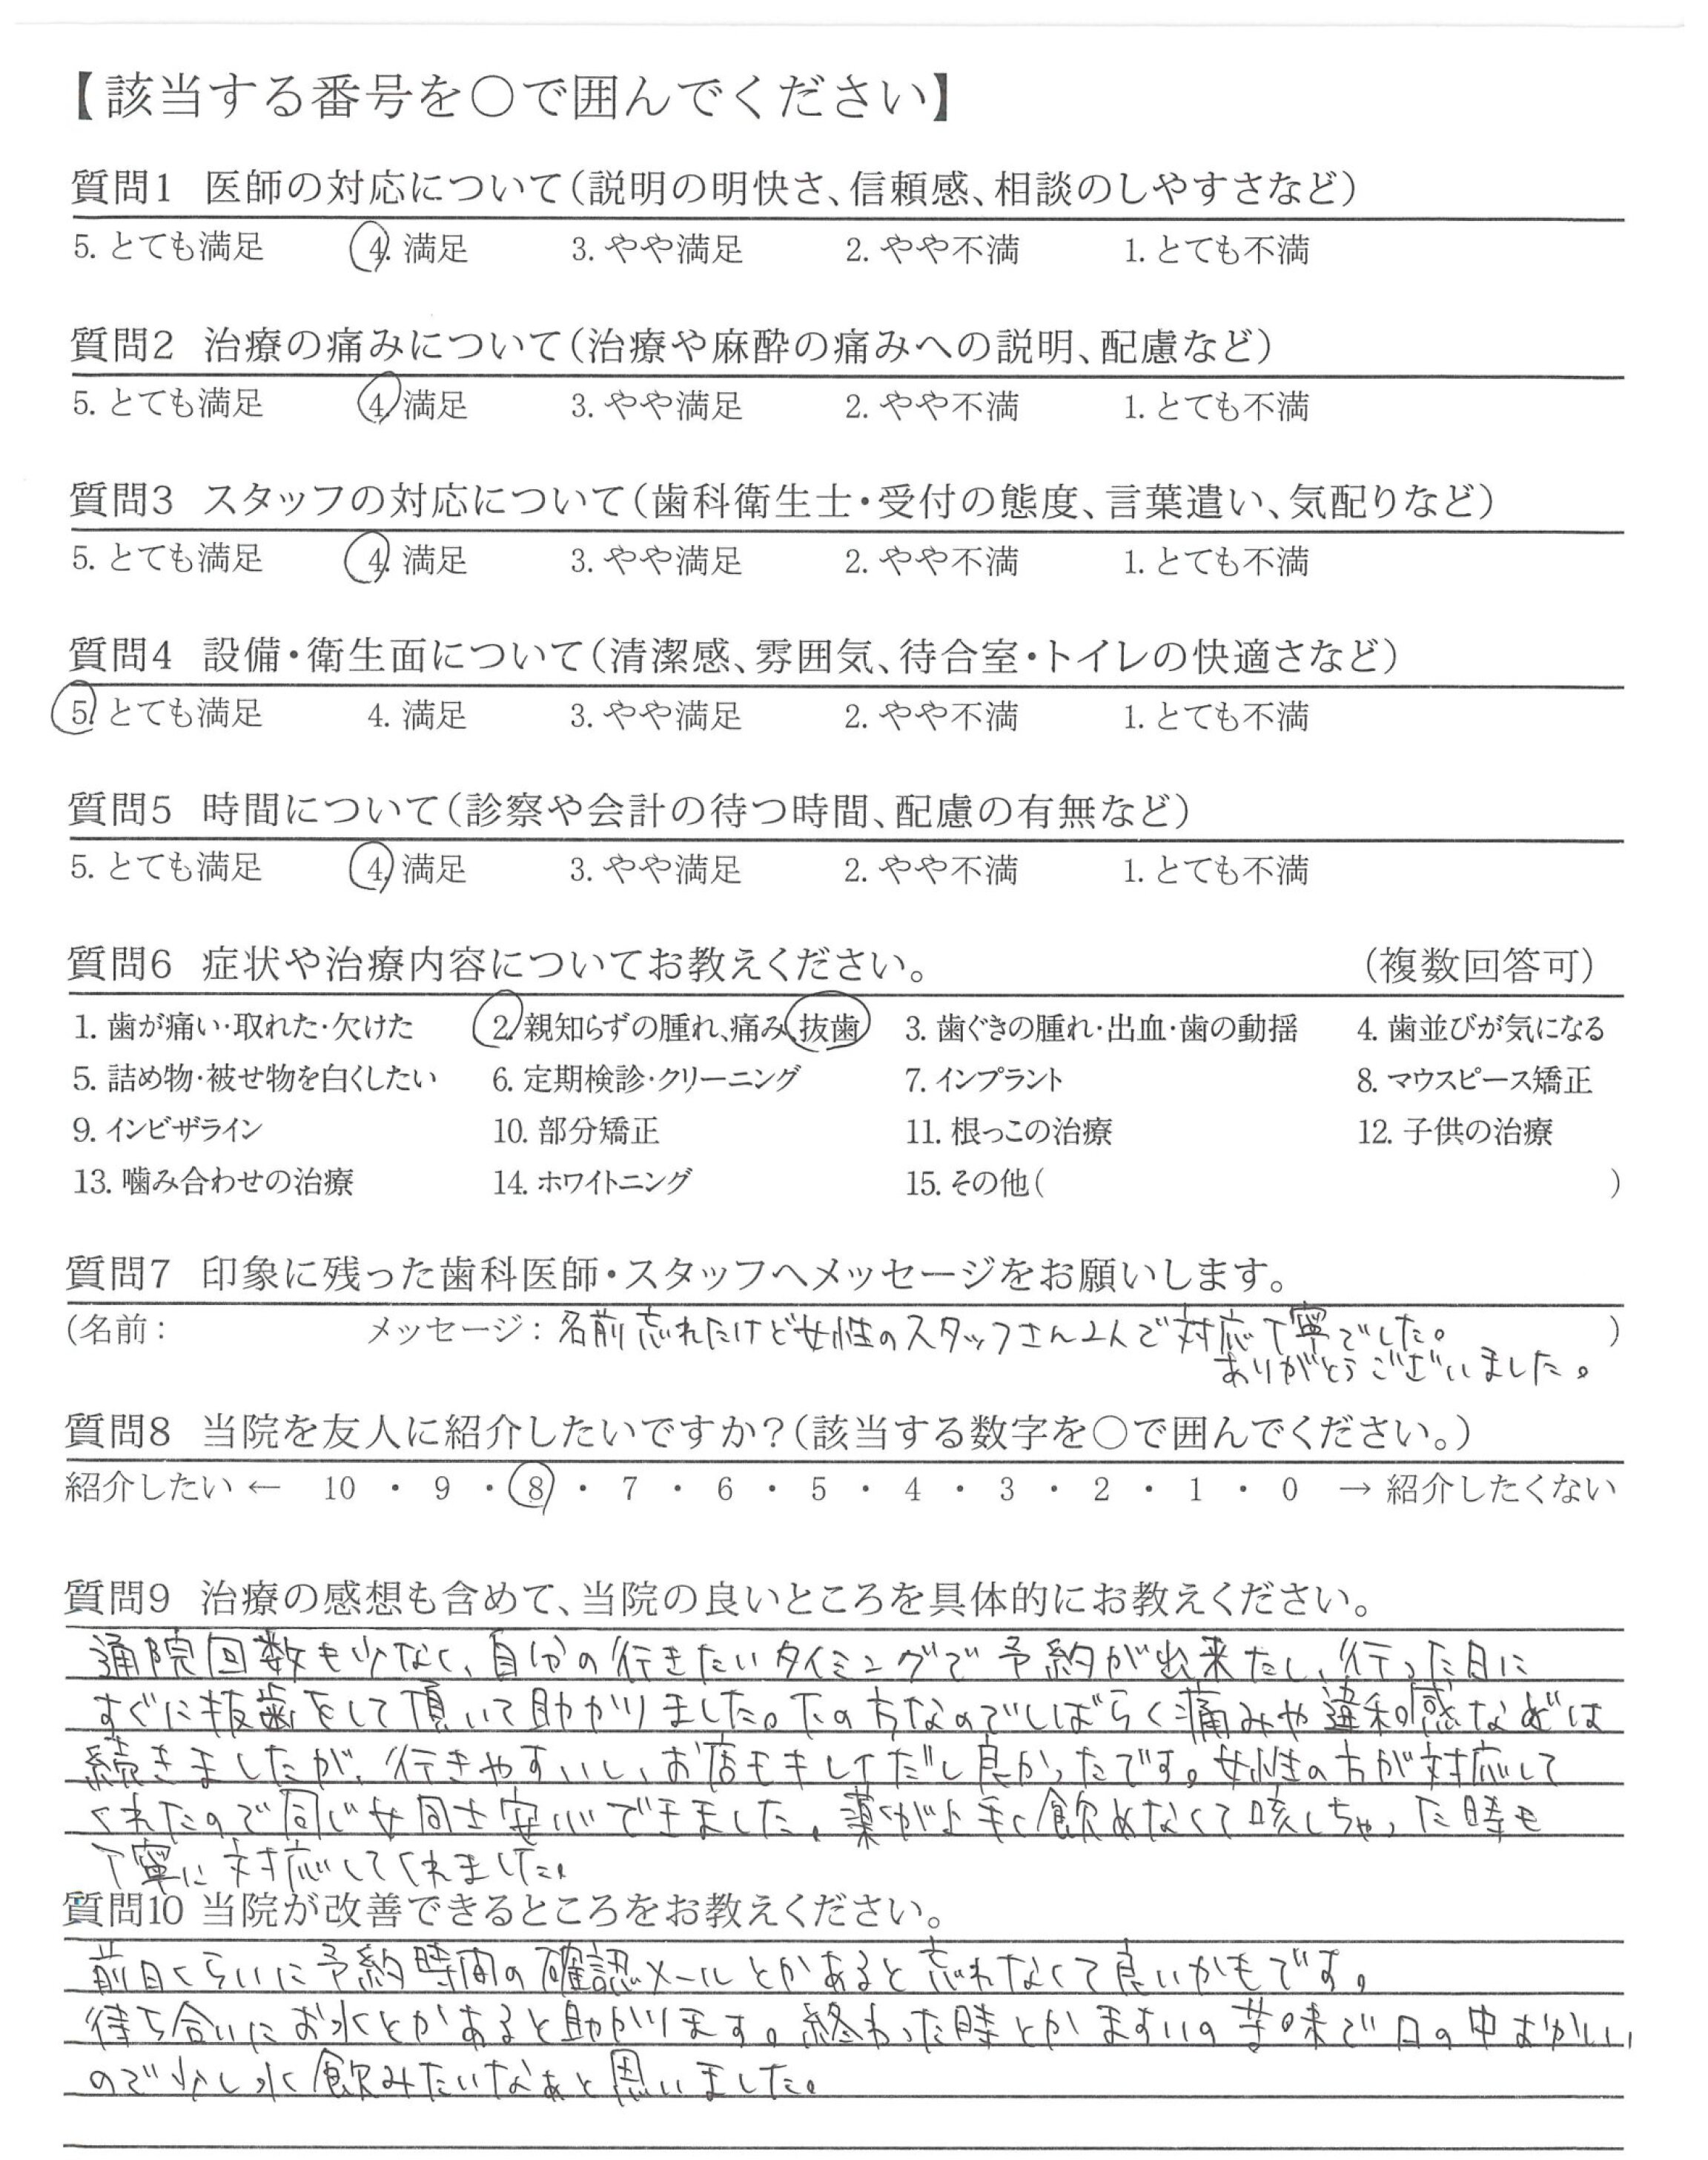 【該当する番号を○で囲んでください】
質問1 医師の対応について(説明の明快さ、信頼感、相談のしやすさなど)
5. とても満足 4. 満足 3. やや満足 2. やや不満 1. とても不満
質問2 治療の痛みについて(治療や麻酔の痛みへの説明、配慮など)
5. とても満足 4. 満足 3. やや満足 2. やや不満 1. とても不満
質問3 スタッフの対応について(歯科衛生士・受付の態度、言葉遣い、気配りなど)
5. とても満足 4. 満足 3. やや満足 2. やや不満 1. とても不満
質問4 設備・衛生面について(清潔感、雰囲気、待合室・トイレの快適さなど)
5. とても満足 4. 満足 3. やや満足 2. やや不満 1. とても不満
質問5 時間について(診察や会計の待つ時間、配慮の有無など)
5. とても満足 4. 満足 3. やや満足 2. やや不満 1. とても不満
質問6 症状や治療内容についてお教えください。 (複数回答可)
1. 歯が痛い・取れた・欠けた 2. 親知らずの腫れ、痛み、抜歯 3. 歯ぐきの腫れ・出血・歯の動揺 4. 歯並びが気になる
5. 詰め物・被せ物を白くしたい 6. 定期検診・クリーニング 7. インプラント 8. マウスピース矯正
9. インビザライン 10. 部分矯正 11. 根っこの治療 12. 子供の治療
13. 噛み合わせの治療 14. ホワイトニング 15. その他( )
質問7 印象に残った歯科医師・スタッフへメッセージをお願いします。
(名前: メッセージ: 名前忘れたけど女性のスタッフさん2人で対応丁寧でした。 )
ありがとうございました。
質問8 当院を友人に紹介したいですか?(該当する数字を○で囲んでください。)
紹介したい ← 10 ・ 9 ・ 8 ・ 7 ・ 6 ・ 5 ・ 4 ・ 3 ・ 2 ・ 1 ・ 0 → 紹介したくない
質問9 治療の感想も含めて、当院の良いところを具体的にお教えください。
通院回数も少なく、自分の行きたいタイミングで予約が出来たし、行った日に
すぐに抜歯をして頂いて助かりました。下の方なのでしばらく痛みや違和感などは
続きましたが、行きやすいし、お店もキレイだし良かったです。女性の方が対応して
くれたので同じ女同士安心できました。薬が上手く飲めなくて咳しちゃった時も
丁寧に対応してくれました。
質問10 当院が改善できるところをお教えください。
前日くらいに予約時間の確認メールとかあると忘れなくて良いかもです。
待ち合いにお水とかあると助かります。終わった時とかますいの苦味で口の中おかしい
ので少し水飲みたいなぁと思いました。